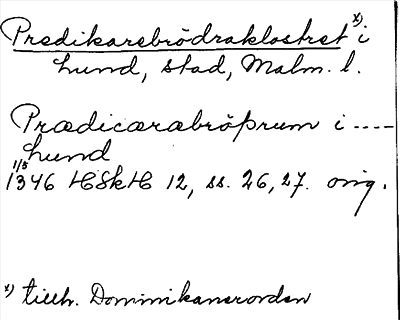 Predikarebrödraklostret x) i
Lund, stad, Malm. l.
Prædicarabröþrum i ----
Lund
1/5
1346 HSkH 12, ss. 26, 27. orig.
x) tillh. Dominikanerorden